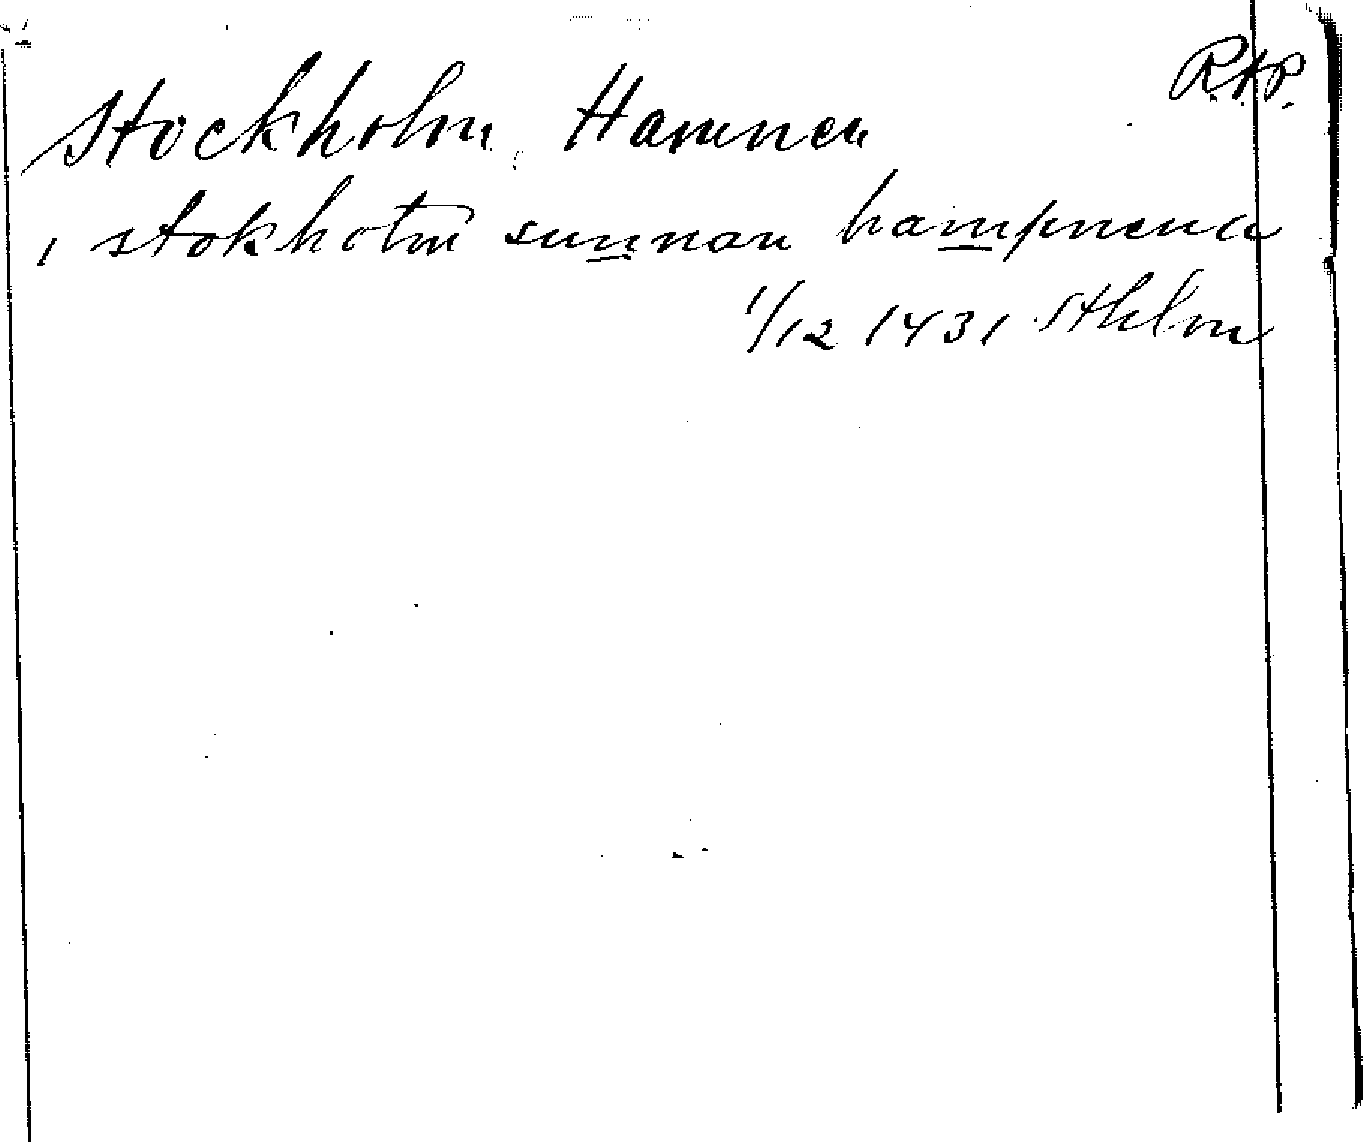 R.A.P.
Stockholm, Hamnen
i stokholm sunnan hampnena
1/12 1431 Sthlm